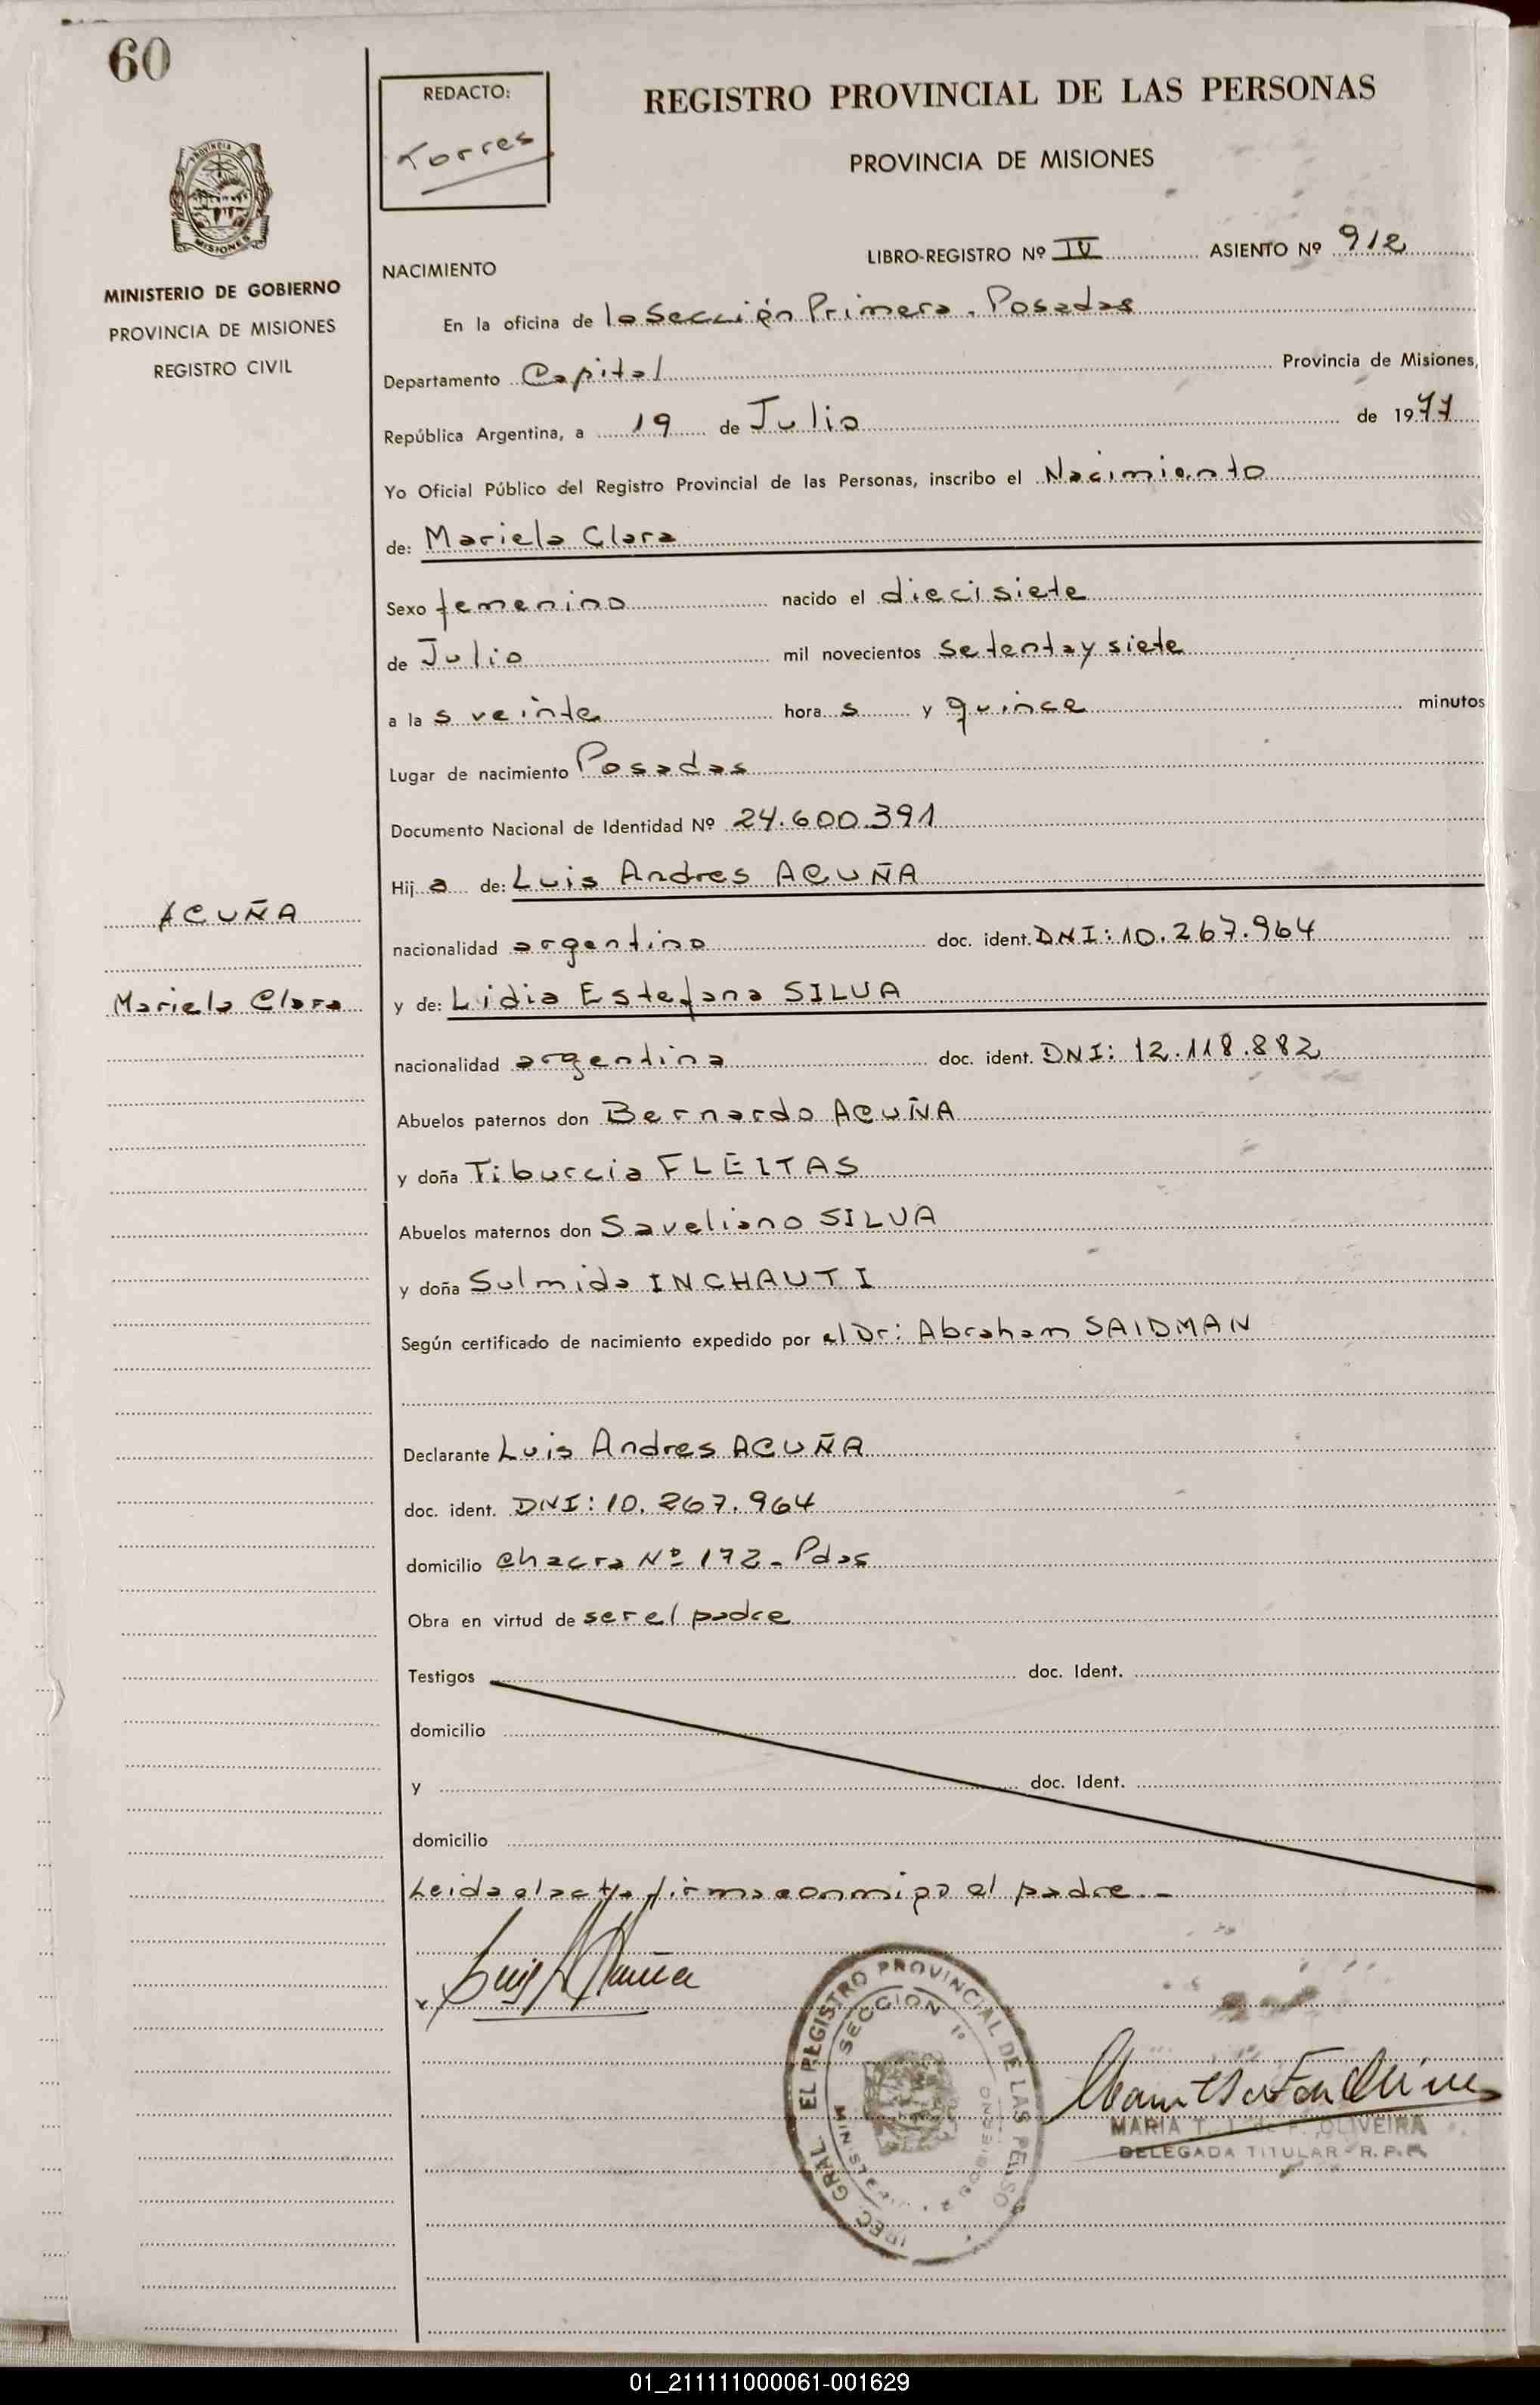 60
REDACTO:
Torres
REGISTRO PROVINCIAL DE LAS PERSONAS
PROVINCIA DE MISIONES
PROVINCIA DE
MISIONES
MINISTERIO DE GOBIERNO
PROVINCIA DE MISIONES
REGISTRO CIVIL
LIBRO-REGISTRO Nº IV ASIENTO Nº 912
NACIMIENTO
En la oficina de la Sección Primera. Posadas
Departamento Capital Provincia de Misiones,
República Argentina, a 19 de Julio de 1977
Yo Oficial Público del Registro Provincial de las Personas, inscribo el Nacimiento
de: Mariela Clara
Sexo femenino nacido el diecisiete
de Julio mil novecientos setenta y siete
a la s veinte hora s y quince minutos
Lugar de nacimiento Posadas
Documento Nacional de Identidad Nº 24.600.391
Hij a de: Luis Andres ACUÑA
ACUÑA
nacionalidad argentino doc. ident. DNI: 10.267.964
Mariela Clara
y de: Lidia Estefana SILVA
nacionalidad argentina doc. ident. DNI: 12.118.882
Abuelos paternos don Bernardo ACUÑA
y doña Tiburcia FLEITAS
Abuelos maternos don Saveliano SILVA
y doña Sulmida INCHAUTI
Según certificado de nacimiento expedido por el Dr: Abraham SAIDMAN
Declarante Luis Andres ACUÑA
doc. ident. DNI: 10.267.964
domicilio Chacra Nº 172- Pdas
Obra en virtud de ser el padre
Testigos doc. Ident.
domicilio
y doc. Ident.
domicilio
Leida el acta firma conmigo el padre.-
Luis A Acuña
EL REGISTRO PROVINCIAL DE LAS PERSO
GRAL.
SECCION 1º
MINISTERIO
GOBIERNO
MARIA T. OLIVEIRA
DELEGADA TITULAR - R.P.P.
01_211111000061-001629